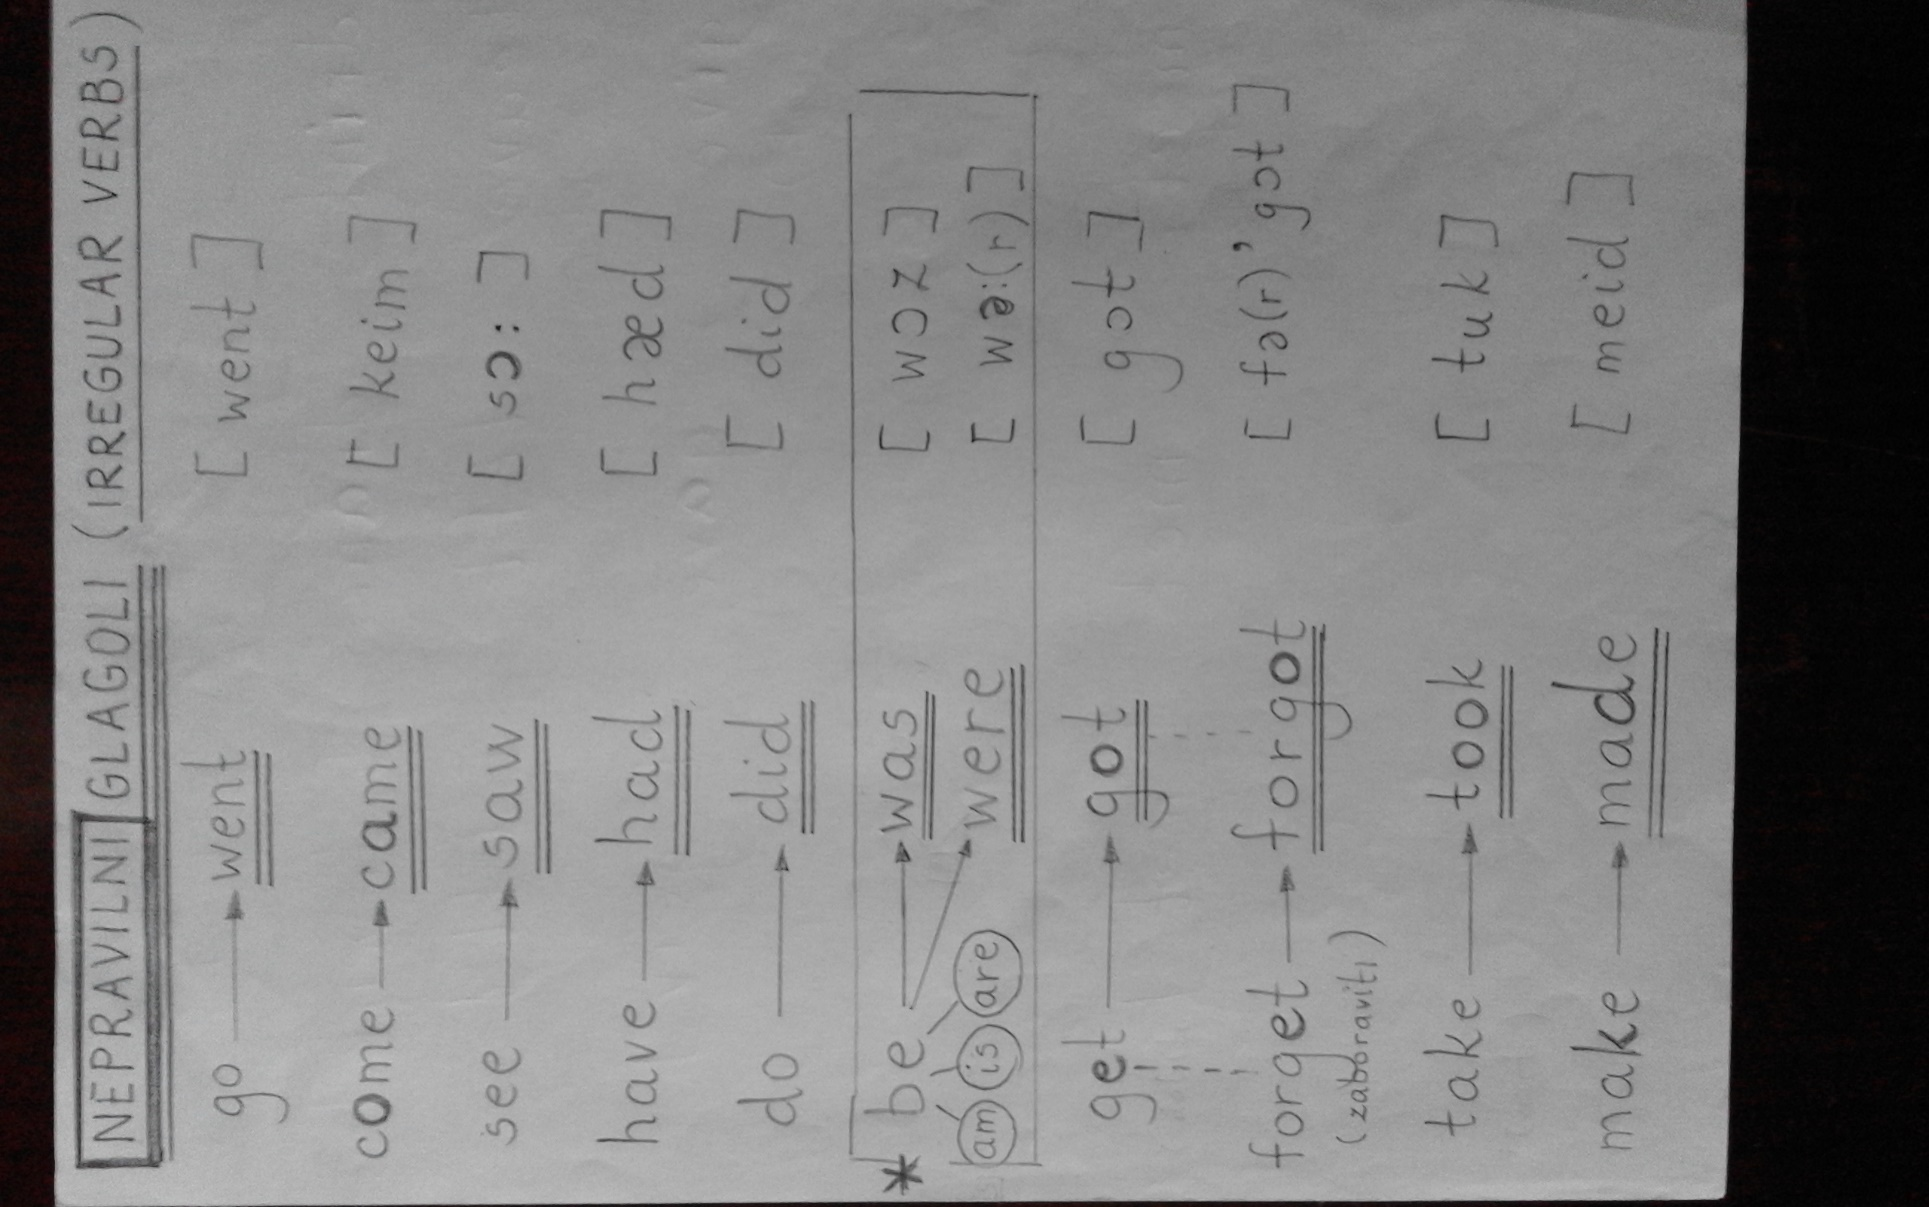 NEPRAVILNI GLAGOLI (IRREGULAR VERBS)
go → went [went]
come → came [keim]
see → saw [sɔ:]
have → had [hæd]
do → did [did]
* be → was [wɔz]
am is are → were [wə:(r)]
get → got [gɔt]
forget → forgot [fə(r)'gɔt]
(zaboraviti)
take → took [tuk]
make → made [meid]